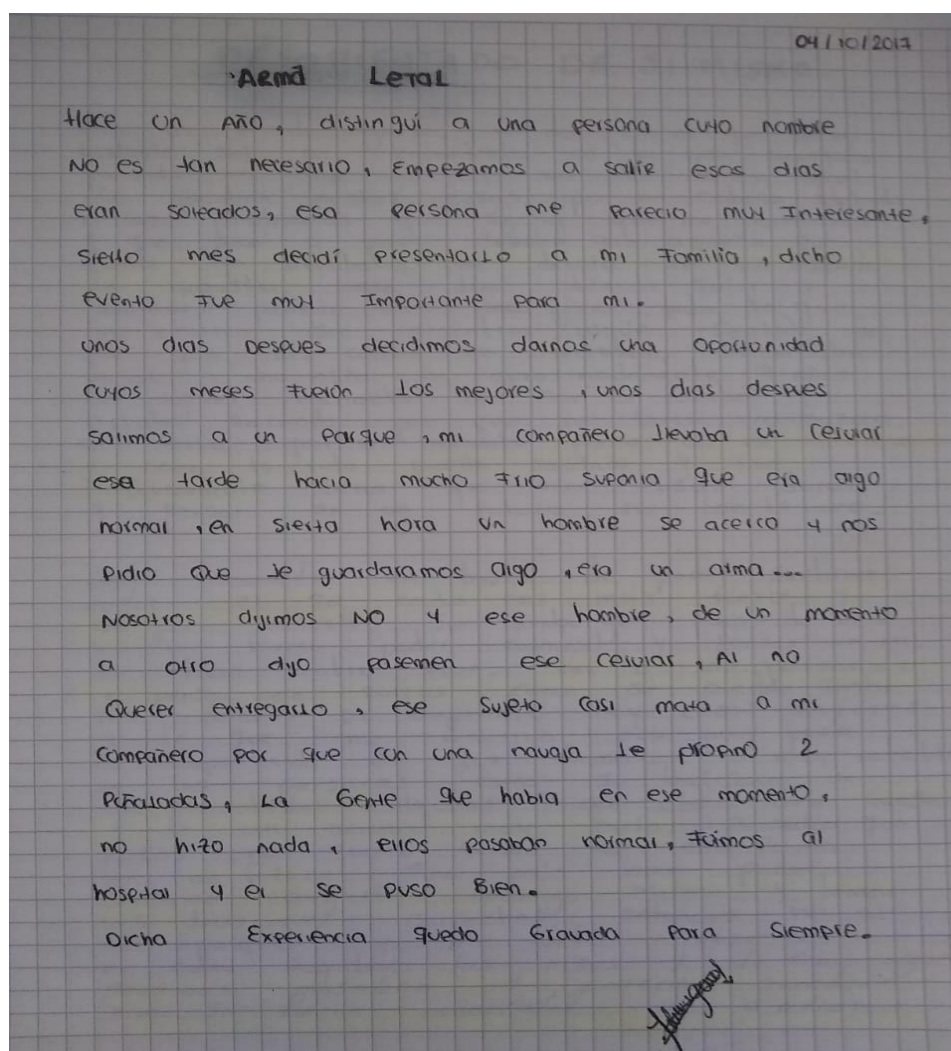 04/10/2017
Arma Letal
Hace un Año, distingui a una persona cuyo nombre
NO es tan necesario, Empezamos a salir esos dias
eran soleados, esa persona me parecio muy Interesante,
Sierto mes decidí presentarlo a mi Familia, dicho
evento fue muy Importante para mi.
unos dias Despues decidimos darnos una oportunidad
cuyos meses fueron los mejores, unos dias despues
salimos a un parque, mi compañero llevaba un celular
esa tarde hacia mucho frio suponia que era algo
normal, en sierta hora un hombre se acerco y nos
pidio que le guardaramos algo, era un arma...
Nosotros dijimos NO y ese hombre, de un momento
a otro dijo pasemen ese celular, Al no
Querer entregarlo, ese sujeto casi mata a mi
compañero por que con una navaja le propino 2
Puñaladas, La Gente que habia en ese momento,
no hizo nada, ellos pasaban normal, fuimos al
hospital y el se puso Bien.
Dicha Experiencia quedo Gravada para siempre.